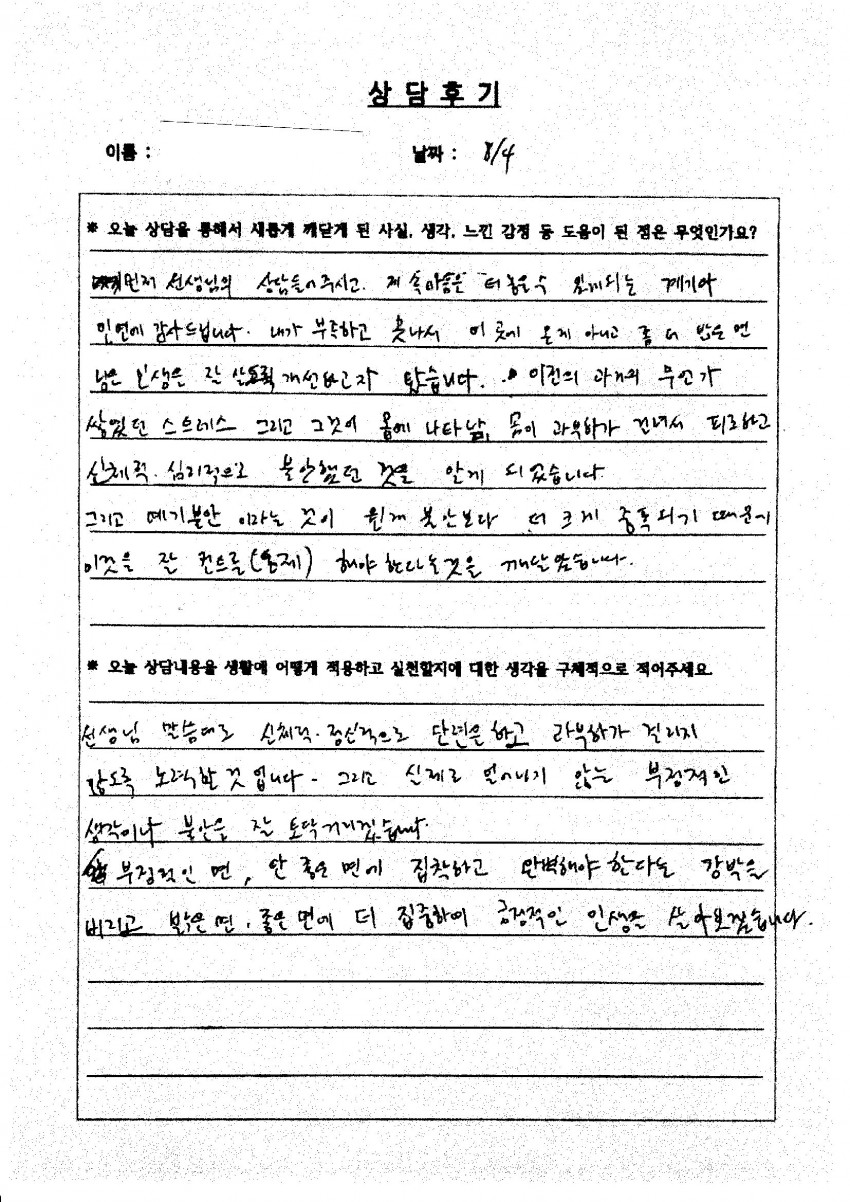 상 담 후 기
이름 :
날짜 : 8/4
※ 오늘 상담을 통해서 새롭게 깨닫게 된 사실, 생각, 느낀 감정 등 도움이 된 점은 무엇인가요?
먼저 선생님의 상담들어주시고. 제 속마음은 터 놓을 수 있게되는 계기와
인연에 감사드립니다. 내가 부족하고 못나서 이 곳에 온게 아니고 좀 더 밝은 면
남은 인생을 잘 살도록 개선하고자 왔습니다. 이전의 과거의 무언가
쌓였던 스트레스 그리고 그것이 몸에 나타남, 몸이 과부하가 걸려서 피로하고
신체적·심리적으로 불안했던 것을 알게 되었습니다.
그리고 예기불안 이라는 것이 원래 불안보다 더 크게 증폭되기 때문에
이것을 잘 컨트롤(통제) 해야한다는것을 깨달았습니다.
※ 오늘 상담내용을 생활에 어떻게 적용하고 실천할지에 대한 생각을 구체적으로 적어주세요.
선생님 말씀대로 신체적·정신적으로 단련을하고 과부하가 걸리지
않도록 노력할것 입니다. 그리고 실제로 일어나기 않는 부정적인
생각이나 불안을 잘 토닥거리겠습니다.
부정적인 면, 안 좋은 면에 집착하고 완벽해야 한다는 강박을
버리고 밝은면, 좋은 면에 더 집중하여 긍정적인 인생을 살아보겠습니다.